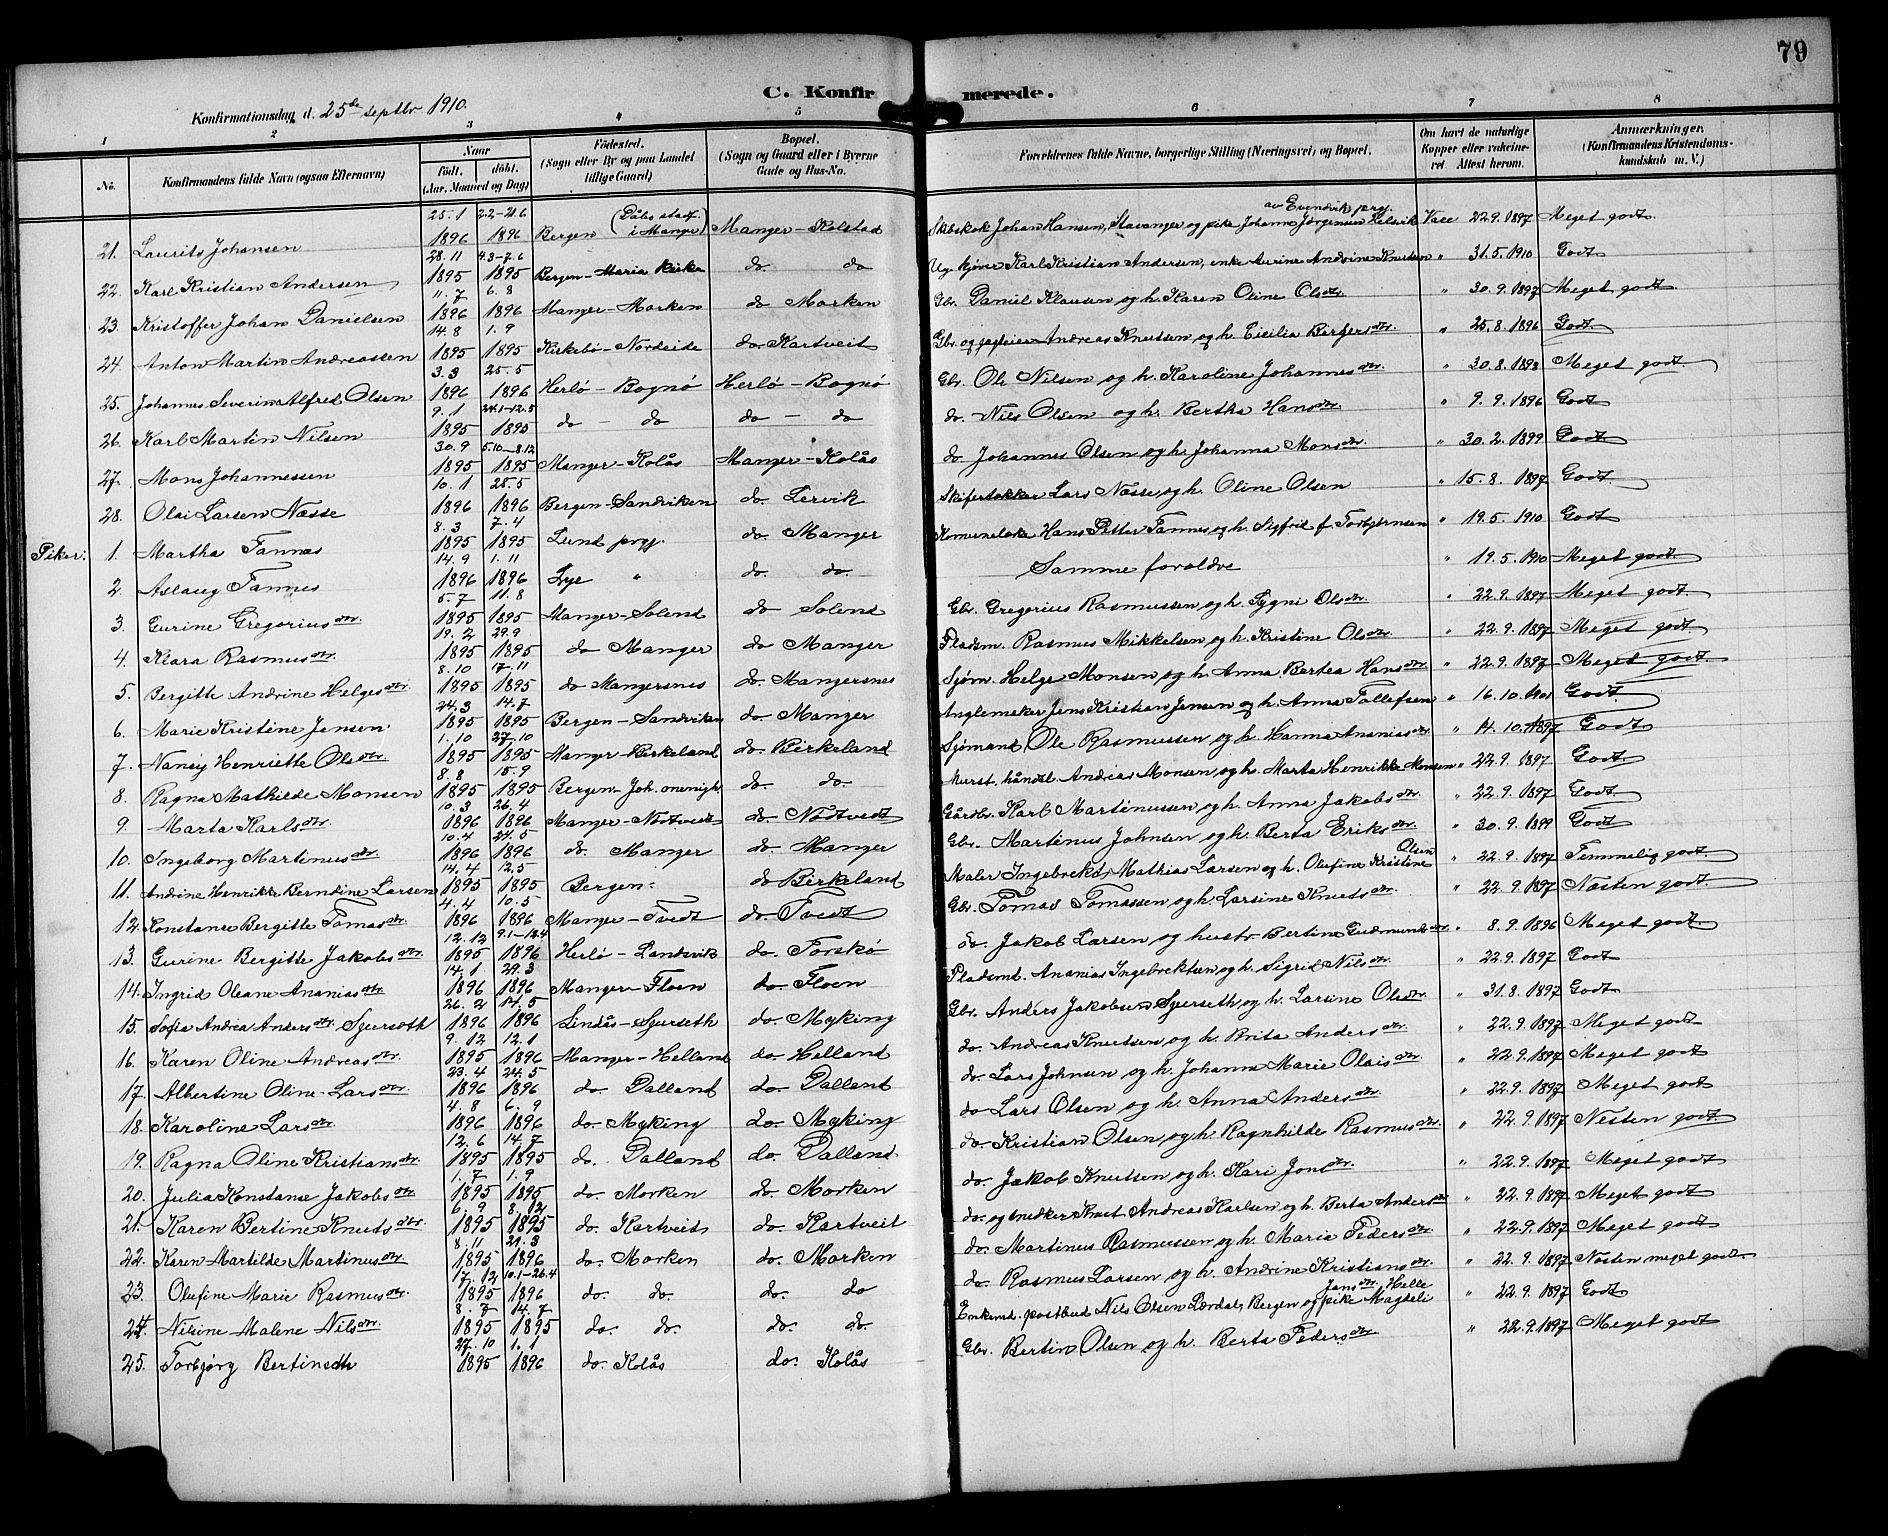 79
C. Konfirmerede.
Konfirmationsdag d. 25de septbr 1910.
1 2 3 4 5 6 7 8
No. Konfirmandens fulde Navn (ogsaa Efternavn) Naar født. døbt. (Aar, Maaned og Dag) Fødested. (Sogn eller By og paa Landet tillige Gaard) Bopæl. (Sogn og Gaard eller i Byerne Gade og Hus-No. Forældrenes fulde Navne, borgerlige Stilling (Næringsvei) og Bopæl. Om havt de naturlige Kopper eller vaccineret Attest herom. Anmærkninger. (Konfirmandens Kristendomskundskab m. V.)
21. Laurits Johansen 25.1 1896 2.2-21.6 1896 Bergen (Dåbs stadf. i Manger) Manger-Kolstad Skibskok Johan Hansen, Stavanger og pike Johanne Jørgensen av Evendvik prgj. Vacc 22.9.1897 Meget godt
22. Karl Kristian Andersen 28.11 1895 4.3-7.6 1895 Bergen-Maria Kirke do do Karl Kristian Andersen, enke Andrine Knutsen " 31.5.1910 Godt
23. Kristoffer Johan Danielsen 11.7 1896 6.8 1896 Manger-Morken do Morken Gbr. Daniel Klausen og h. Karen Oline Olsdtr. " 30.9.1897 Meget godt
24. Anton Martin Andreassen 14.8 1895 1.9 1895 Kirkebø-Nordeide do Kartveit Gbr. og Andreas Knutsen og h. Cicilia Bergersdtr. " 25.8.1896 Godt
25. Johannes Severin Alfred Olsen 3.3 1896 25.5 1896 Herlø-Bognø Herlø-Bognø Gbr. Ole Nilsen og h. Karoline Johannesdtr. " 30.8.1898 Meget godt
26. Karl Martin Nilsen 9.1 1895 24.1-12.5 1895 do - do do - do do. Nils Olsen og h. Bertha Hansdtr. " 9.9.1896 Godt
27. Mons Johannessen 30.9 1895 5.10-8.12 1895 Manger-Kolås Manger-Kolås do. Johannes Olsen og h. Johanna Monsdtr. " 30.2.1899 Godt
28. Olai Larsen Næsse 10.1 1896 28.5 1896 Bergen-Sandviken do. Lervik Skifertækker Lars Næsse og h. Oline Olsen " 15.8.1897 Godt
Piker: 1. Martha Tannes 8.3 1895 7.4 1895 Lund prgj. do. Manger Hans Petter Tannes og h. Sigfrid f. Torbjørnsen " 19.5.1910 Godt
2. Aslaug Tannes 14.9 1896 1.11 1896 Lye " do. do. Samme forældre " 19.5.1910 Meget godt
3. Gurine Gregoriusdtr. 5.7 1895 11.8 1895 Manger-Solend do Solend Gbr. Gregorius Rasmussen og h. Sygni Olsdtr. " 22.9.1897 Meget godt
4. Klara Rasmusdtr. 19.2 1895 29.9 1895 do Manger do. Manger Pladsm. Rasmus Mikkelsen og h. Kristine Olsdtr. " 22.9.1897 Meget godt
5. Bergitte Andrine Helgesdtr. 8.10 1895 17.11 1895 do Mangersnes do. Mangersnes Sjøm. Helge Monsen og h. Anna Bertea Hansdtr. " 22.9.1897 Meget godt
6. Marie Kristine Jensen 24.3 1895 14.7 1895 Bergen-Sandviken do. Manger Jens Kristian Jensen og h. Anna Tollefsen " 16.10.1901 Godt
7. Nancy Henriette Olsdtr. 1.10 1895 27.10 1895 Manger-Birkeland do. Birkeland Sjømand Ole Rasmussen og h. Hanna Ananiasdtr. " 14.10.1897 Godt
8. Ragna Mathilde Monsen 8.8 1895 15.9 1895 Bergen-Joh. menigh do. do. Andreas Monsen og h. Marta Henrikke Monsen " 22.9.1897 Godt
9. Marta Karlsdtr. 10.3 1896 26.4 1896 Manger-Nøtvedt do. Nøtvedt Gårdbr. Karl Martinussen og h. Anna Jakobsdtr. " 22.9.1897 Godt
10. Ingeborg Martinusdtr. 10.4 1896 24.5 1896 do. Manger do. Manger Gbr. Martinus Johnsen og h. Berta Eriksdtr. " 30.9.1899 Godt
11. Andrine Henrikke Berndine Larsen 14.4 1895 12.5 1895 Bergen. do Birkeland Maler Ingebrekt Mathias Larsen og h. Olufine Kristine Olsen " 22.9.1897 Temmelig godt
12. Constanse Bergitte Tomasdtr. 4.4 1896 10.5 1896 Manger-Tvedt do. Tvedt Gbr. Tomas Tomassen og h. Larsine Knutsdtr. " 22.9.1897 Næsten godt
13. Gurine Bergitte Jakobsdtr. 12.12 1895 9.1-12.4 1896 Herlø-Landsvik do. Toskø do. Jakob Larsen og hustr. Bertine Gudmundsdtr. " 8.9.1896 Meget godt
14. Ingrid Oleane Ananiasdtr. 14.1 1896 29.3 1896 Manger-Floen do. Floen Pladsmd. Ananias Ingebrektsen og h. Sigrid Nilsdtr. " 22.9.1897 Godt
15. Sofie Andrea Andersdtr. Syrseth 26.2 1896 14.5 1896 Lindås-Syrseth do. Myking Gbr. Anders Jakobsen Syrseth og h. Larsine Olsdtr. " 31.8.1897 Godt
16. Karen Oline Andreasdtr. 9.12 1895 12.1 1896 Manger-Helland do. Helland do. Andreas Knutsen og h. Brita Andersdtr. " 22.9.1897 Meget godt
17. Albertine Oline Larsdtr. 23.4 1896 24.5 1896 do. Dalland do. Dalland do. Lars Johnsen og h. Johanna Marie Olaisdtr. " 22.9.1897 Meget godt
18. Karoline Larsdtr. 4.8 1896 6.9 1896 do. Myking do. Myking do Lars Olsen og h. Anna Andersdtr. " 22.9.1897 Meget godt
19. Ragna Oline Kristiansdtr. 12.6 1895 14.7 1895 do. Dalland do. Dalland do. Kristian Olsen og h. Ragnhilde Rasmusdtr. " 22.9.1897 Nesten godt
20. Julia Konstanse Jakobsdtr. 1.7 1895 1.9 1895 do. Morken do. Morken do. Jakob Knutsen og h. Kari Jonsdtr. " 22.9.1897 Meget godt
21. Karen Bertine Knutsdtr. 6.9 1895 8.12 1895 do. Kartveit do. Kartveit do. og snedker Knut Andreas Karlsen og h. Berta Andersdtr. " 22.9.1897 Meget godt
22. Karen Martilde Martinusdtr. 8.11 1895 21.3 1896 do. Morken do. Morken do. Martinus Rasmussen og h. Marie Pedersdtr. " 22.9.1897 Meget godt
23. Olufine Marie Rasmusdtr. 17.12 1895 10.1-26.4 1896 do. do. do. do do. Rasmus Larsen og h. Andrine Kristiansdtr. " 22.9.1897 Næsten meget godt
24. Nisine Malene Nilsdtr. 8.7 1895 14.7 1895 do. do. do. do. Enkemd. postbud Nils Olsen Lærdal, Bergen og pike Magdeli Jansdtr. Helle " 22.9.1897 Godt
25. Torbjørg Bertinsdtr 27.10 1895 1.1 1896 do. Kolås do. Kolås Gbr. Bertin Olsen og h. Berta Pedersdtr. " 22.9.1897 Meget godt